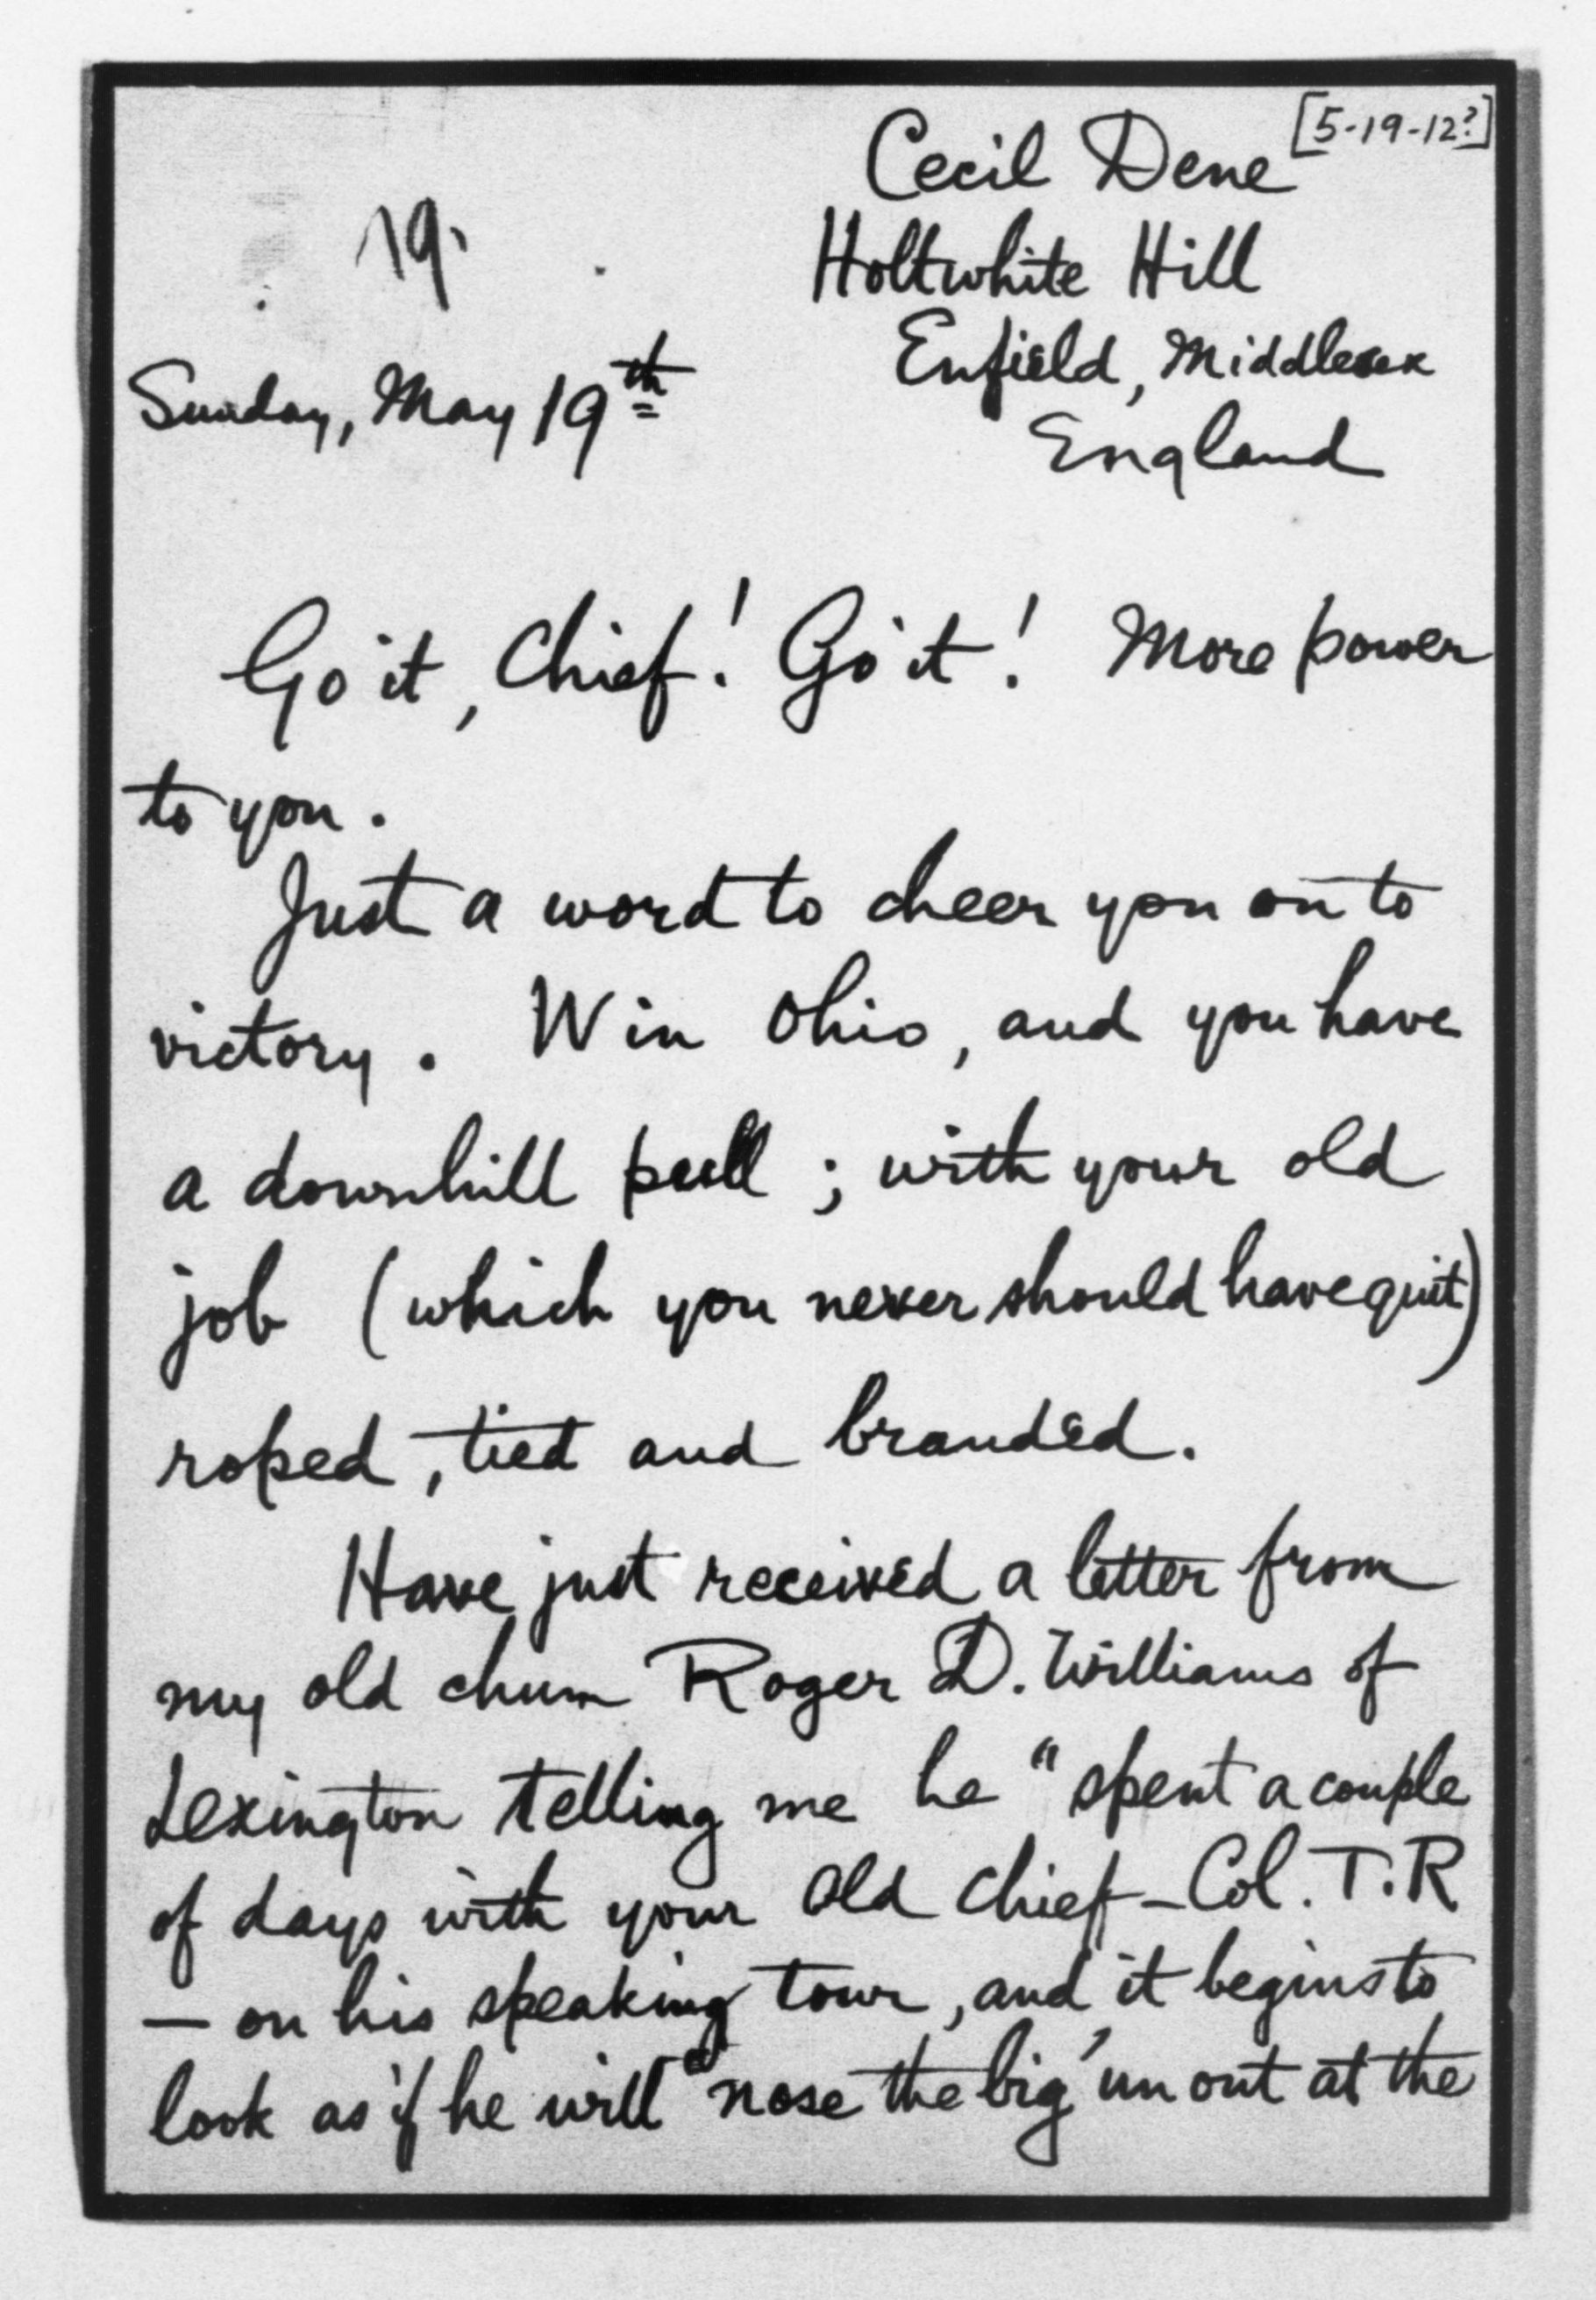 [5-19-12?]
Cecil Dene
19.
Holtwhite Hill
Enfield, Middlesex
Sunday, May 19th
England
Go it, Chief! Go it! More power
to you.
Just a word to cheer you on to
victory. Win Ohio, and you have
a downhill pull; with your old
job (which you never should have quit)
roped, tied and branded.
Have just received a letter from
my old chum Roger D. Williams of
Lexington telling me he "spent a couple
of days with your old chief - Col. T.R
— on his speaking tour, and it begins to
look as if he will "nose the big 'un out at the